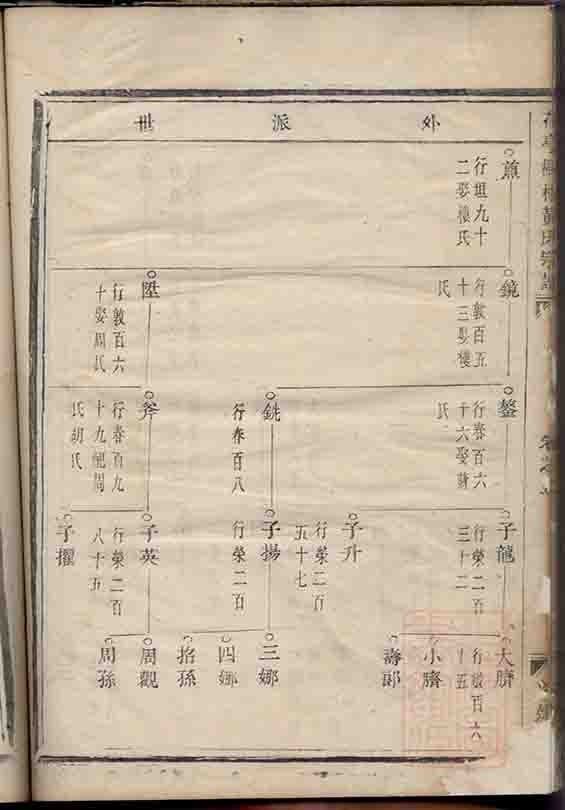 外派世
黃氏宗譜
行坦九十
二娶樓氏
鏡
行敦百五
十三娶樓
氏
陞
行敦百六
十娶周氏
鏊
行春百六
十六娶
氏
銚
行春百八
斧
行春百九
十九配周
氏胡氏
子龍
行榮二百
三十二
子升
行榮二百
五十七
子揚
行榮二百
子英
行榮二百
八十五
子擢
大臍
行百六
十五
小臍
壽郎
三娜
四娜
拾孫
周觀
周孫